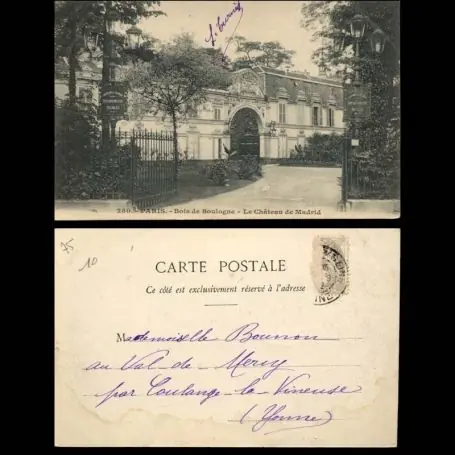 2805 - PARIS. - Bois de Boulogne - Le Château de Madrid
75
10
CARTE POSTALE
Ce côté est exclusivement réservé à l'adresse
Mademoiselle
au Val-de-Mercy
par Coulange-la-Vineuse
(Yonne)